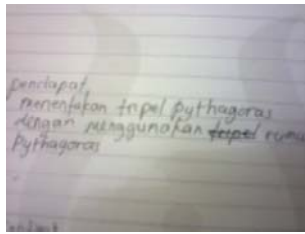 pendapat,
menentukan tripel pythagoras
dengan menggunakan tripel rumus
pythagoras